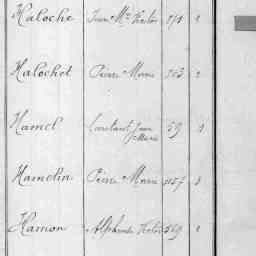 Haloche Jean Mie Victor 171 1
Halochet Pierre Marie 703 2
Hamel Constant Jean Marie 59 1
Hamelin Pierre Marie 1157 3
Hamon Alphonse Victor 569 1